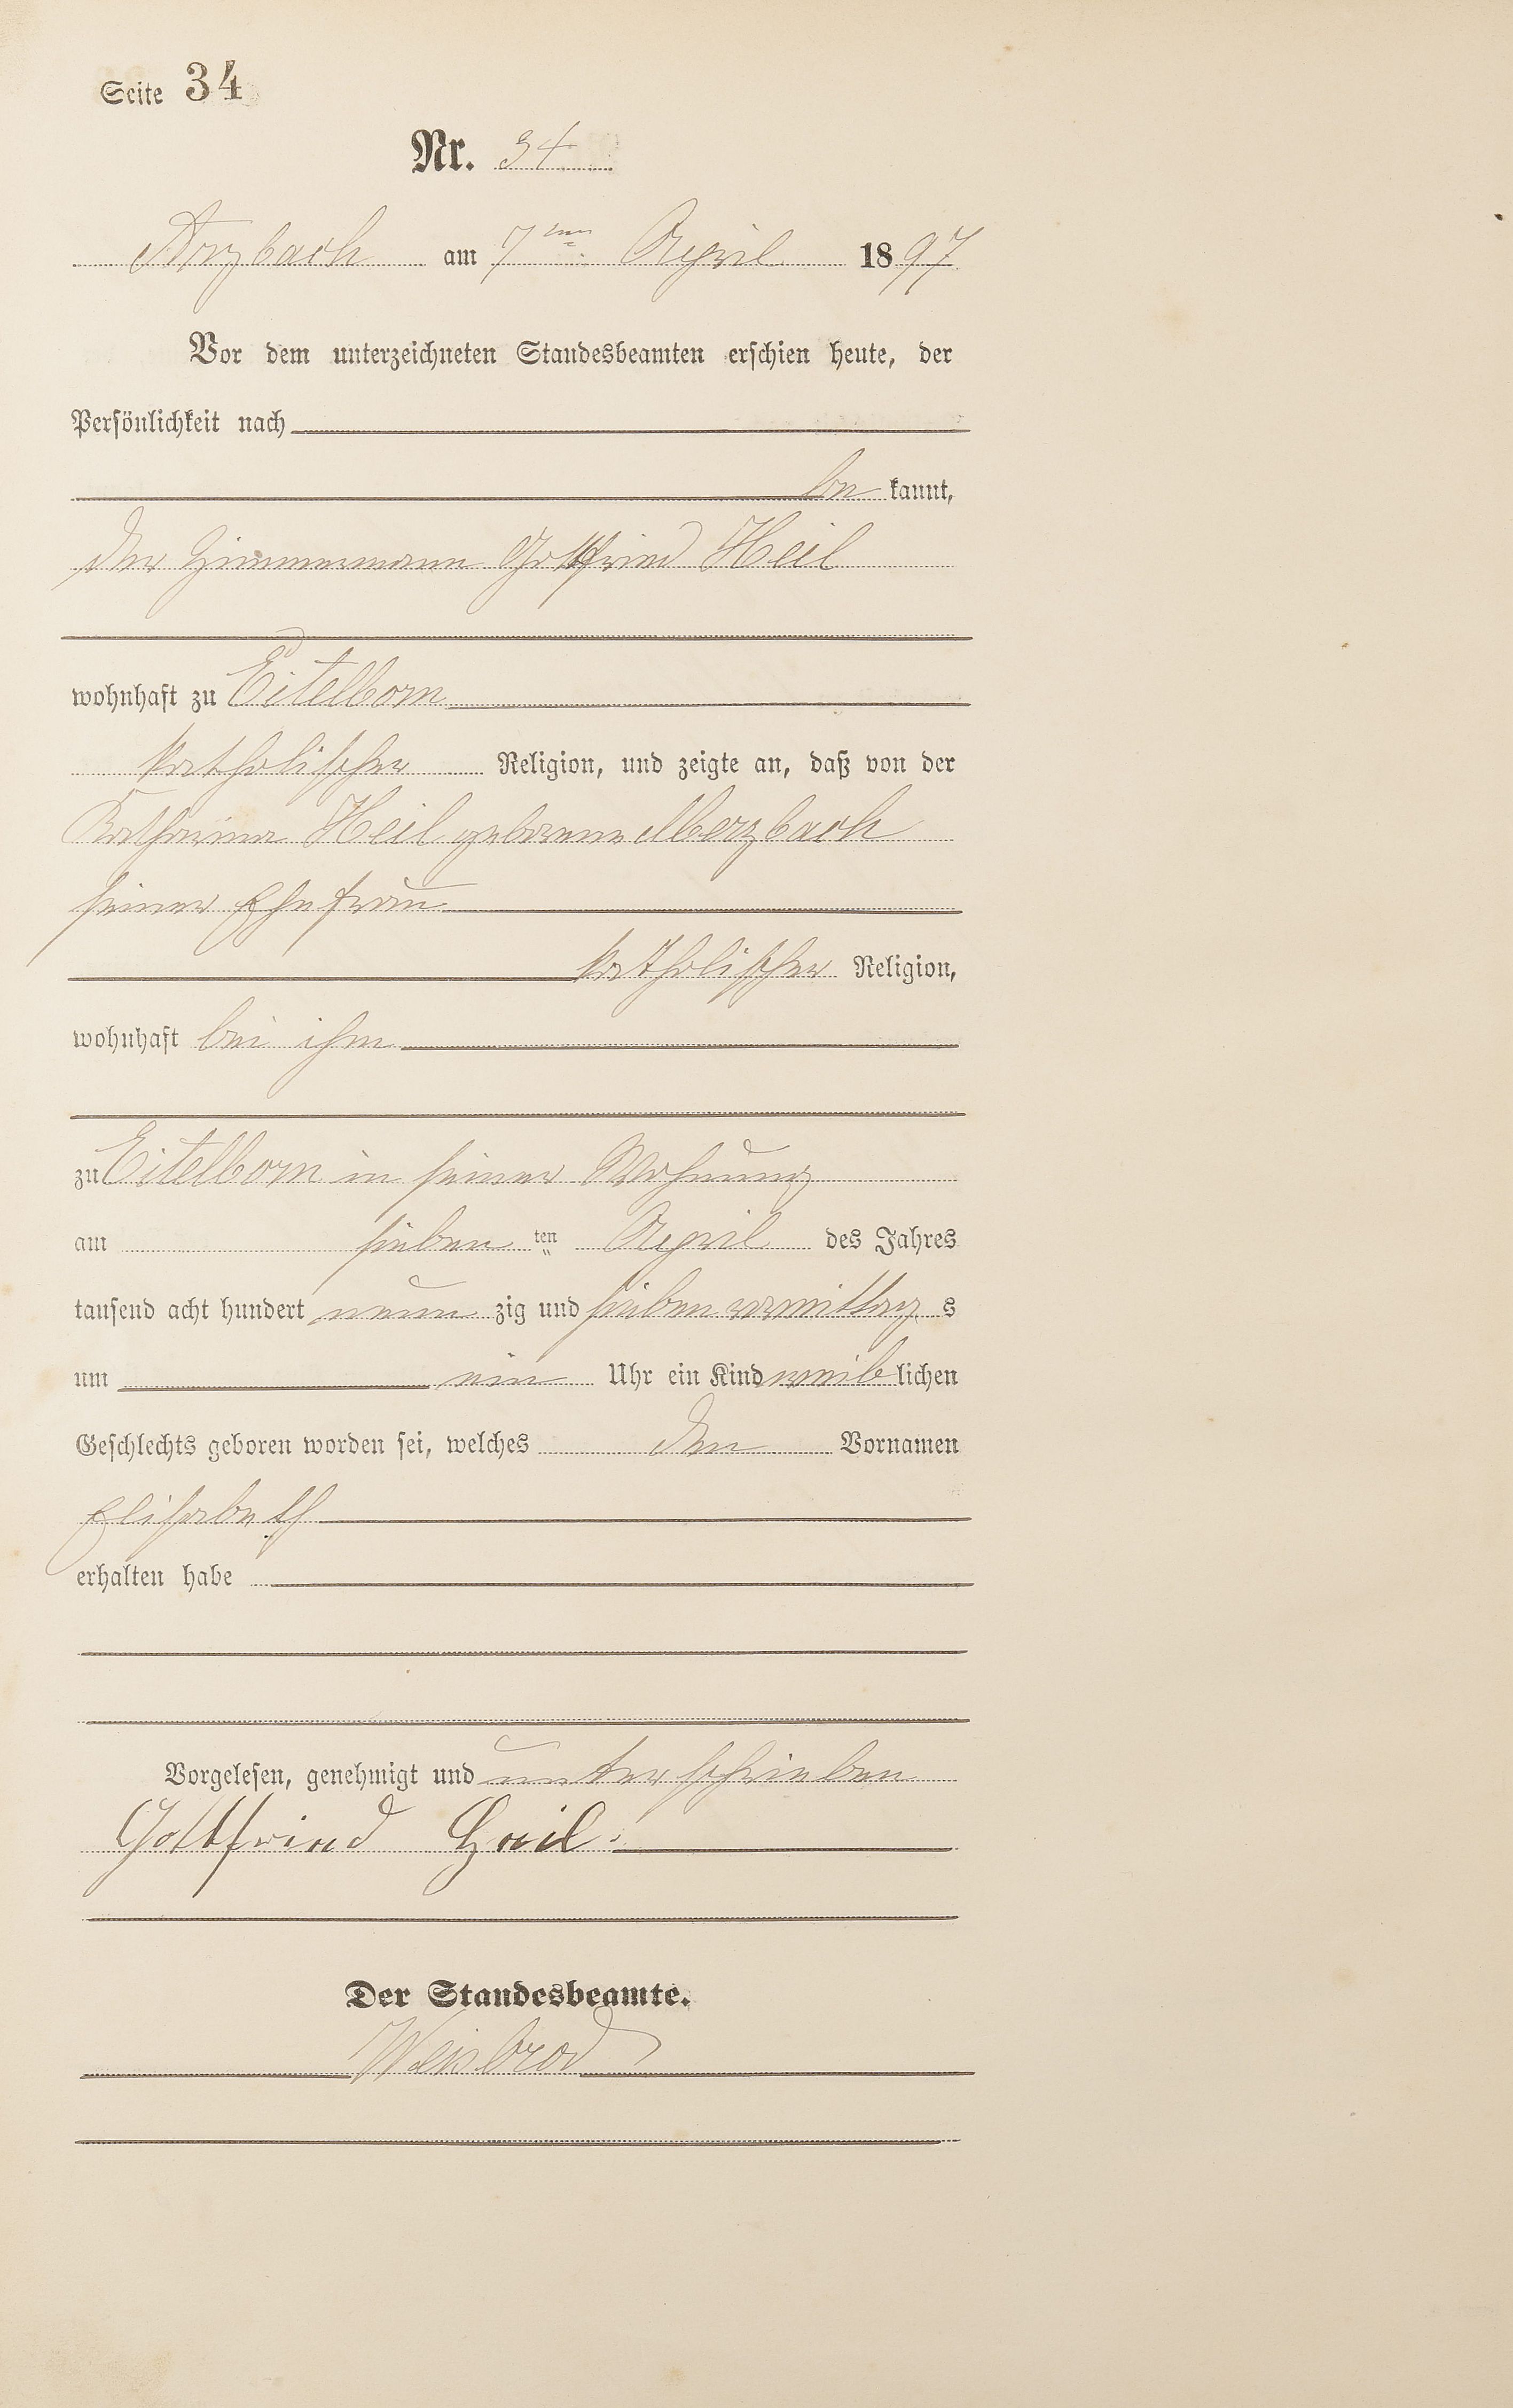 Seite 34
Nr. 34
Arzbach am 7ten April 1897
Vor dem unterzeichneten Standesbeamten erschien heute, der
Persönlichkeit nach
be kannt,
der Zimmermann Gottfried Heil
wohnhaft zu Eitelborn
katholischer Religion, und zeigte an, daß von der
Katharina Heil geborene Merzbach
seiner Ehefrau
katholischer Religion,
wohnhaft bei ihm
zu Eitelborn in seiner Wohnung
am sieben ten April des Jahres
tausend acht hundert neun zig und sieben vormittag s
um ein Uhr ein Kind weib lichen
Geschlechts geboren worden sei, welches den Vornamen
Elisabeth
erhalten habe
Vorgelesen, genehmigt und unterschrieben
Gottfried Heil.
Der Standesbeamte.
Weisbrod